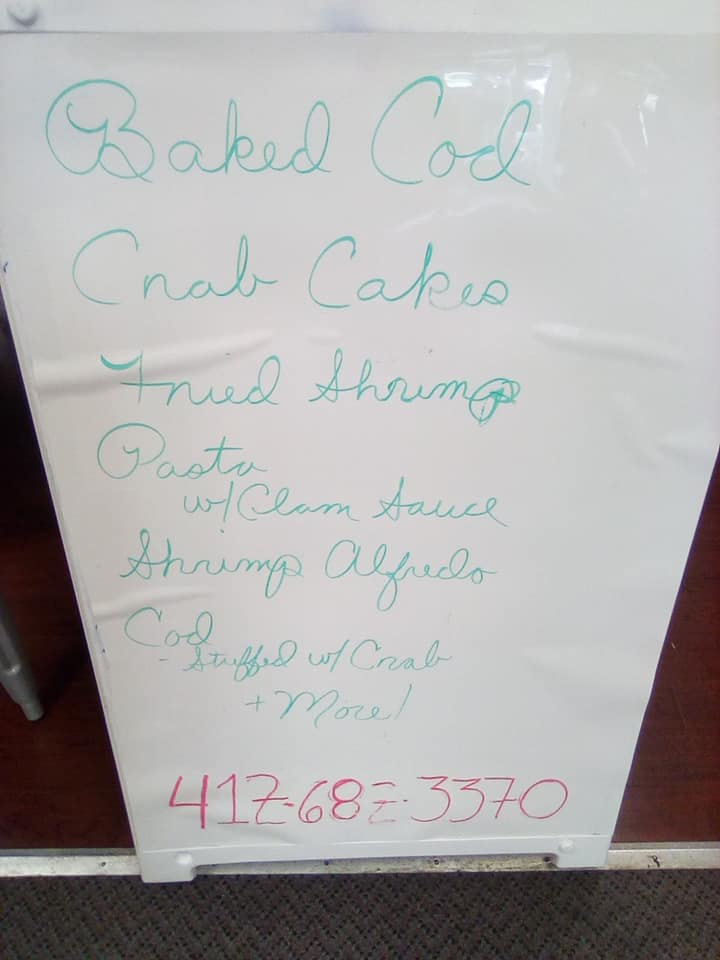 Baked Cod
Crab Cakes
Fried Shrimp
Pasta
w/ Clam Sauce
Shrimp Alfredo
Cod
- Stuffed w/ Crab
+ More!
412-682-3370